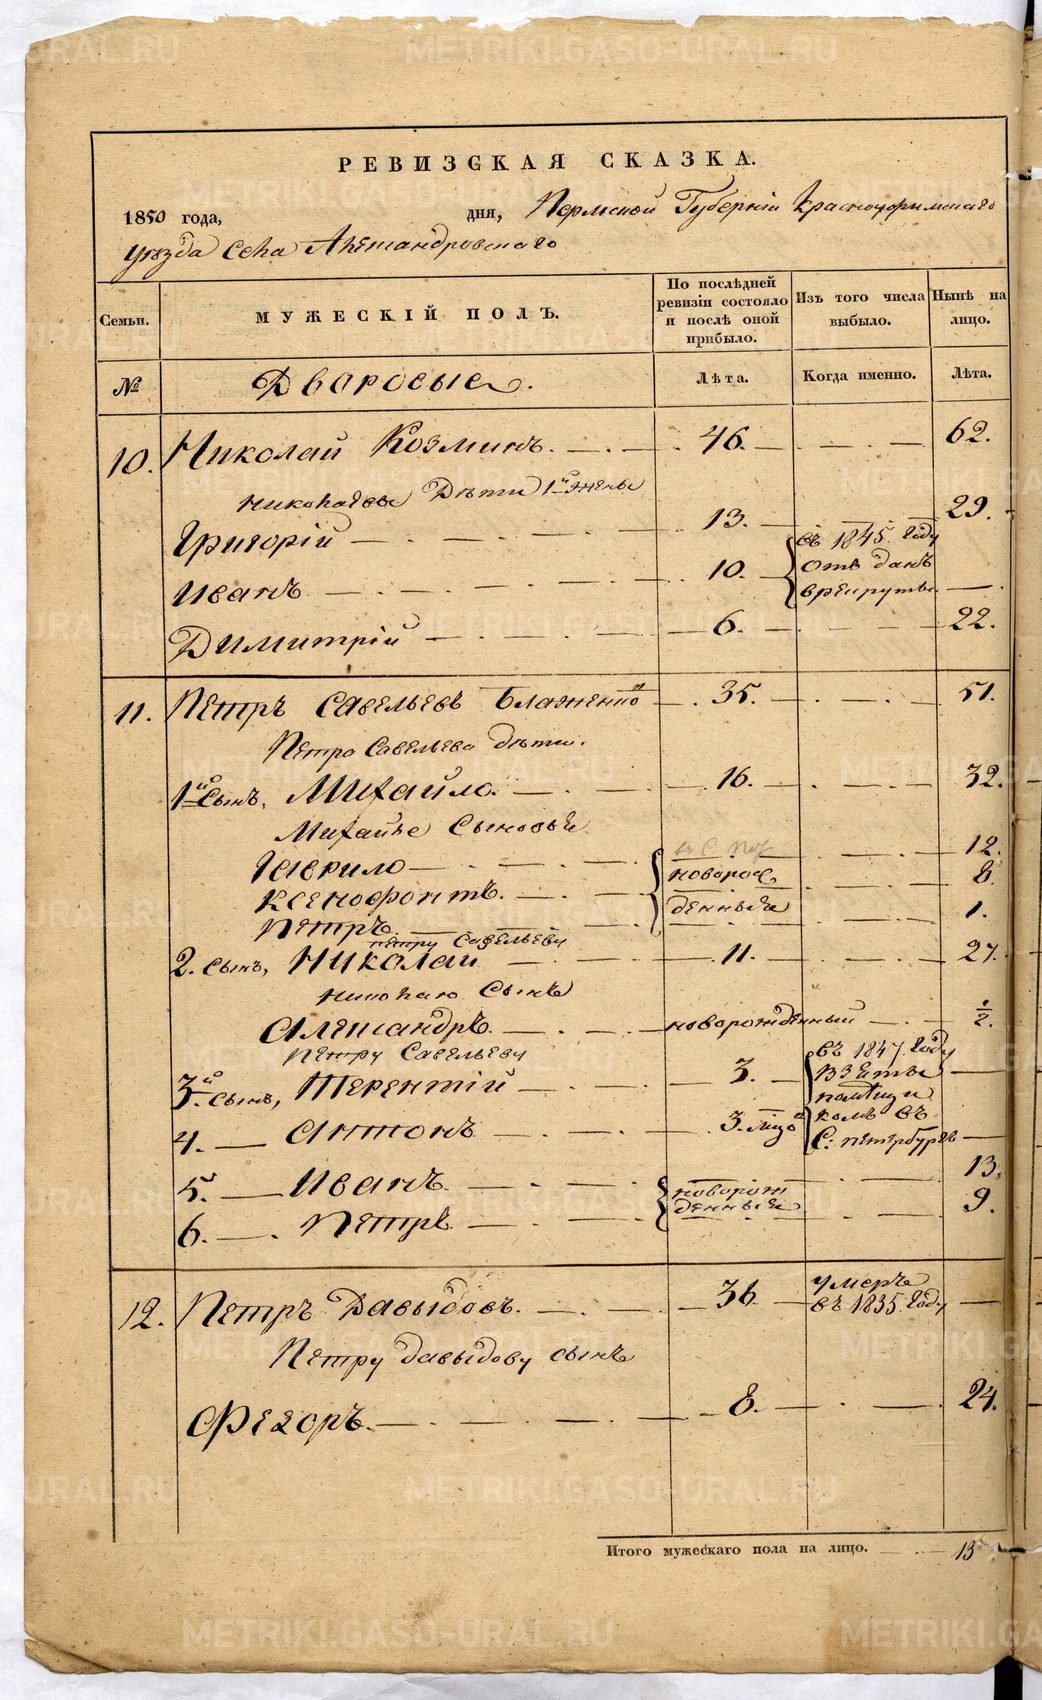 РЕВИЗСКАЯ СКАЗКА.
1850 года, дня, Пермской Губерніи Красноуфимскаго
уѣзда Села Александровскаго
Семьи. МУЖЕСКІЙ ПОЛЪ. По послѣдней ревизіи состояло и послѣ оной прибыло. Изъ того числа выбыло. Нынѣ на лицо.
№ Дворовые. Лѣта. Когда именно. Лѣта.
10. Николай Козминъ. 46. 62.
Николаевы Дѣти 1й жены
Григорій 13. 29.
Иванъ 10. въ 1845. году отъ данъ в рекруты
Димитрій 6. 22.
11. Петръ Савельевъ 35. 51.
Петра Савельева дѣти.
1й Сынъ, Михайло. 16. 32.
Михайле Сыновья
Гаврило 12.
Ксенофонтъ. новорож 8.
Петръ. денныя 1.
Петру Савельеву
2. Сынъ, Николай 11. 27.
Николаю Сынъ
Александръ. новорожденный 1/2.
Петру Савельеву
3.й Сынъ, Терентій 3. въ 1847. году взяты
4. Антонъ 3. помѣщикомъ въ С: петербургъ
5. Иванъ. новорож 13.
6. Петръ денныя 9.
12. Петръ Давыдовъ. 36 умеръ въ 1835. году
Петру Давыдову сынъ
Федоръ. 8. 24.
Итого мужескаго пола на лицо. 13
METRIKI.GASO-URAL.RU